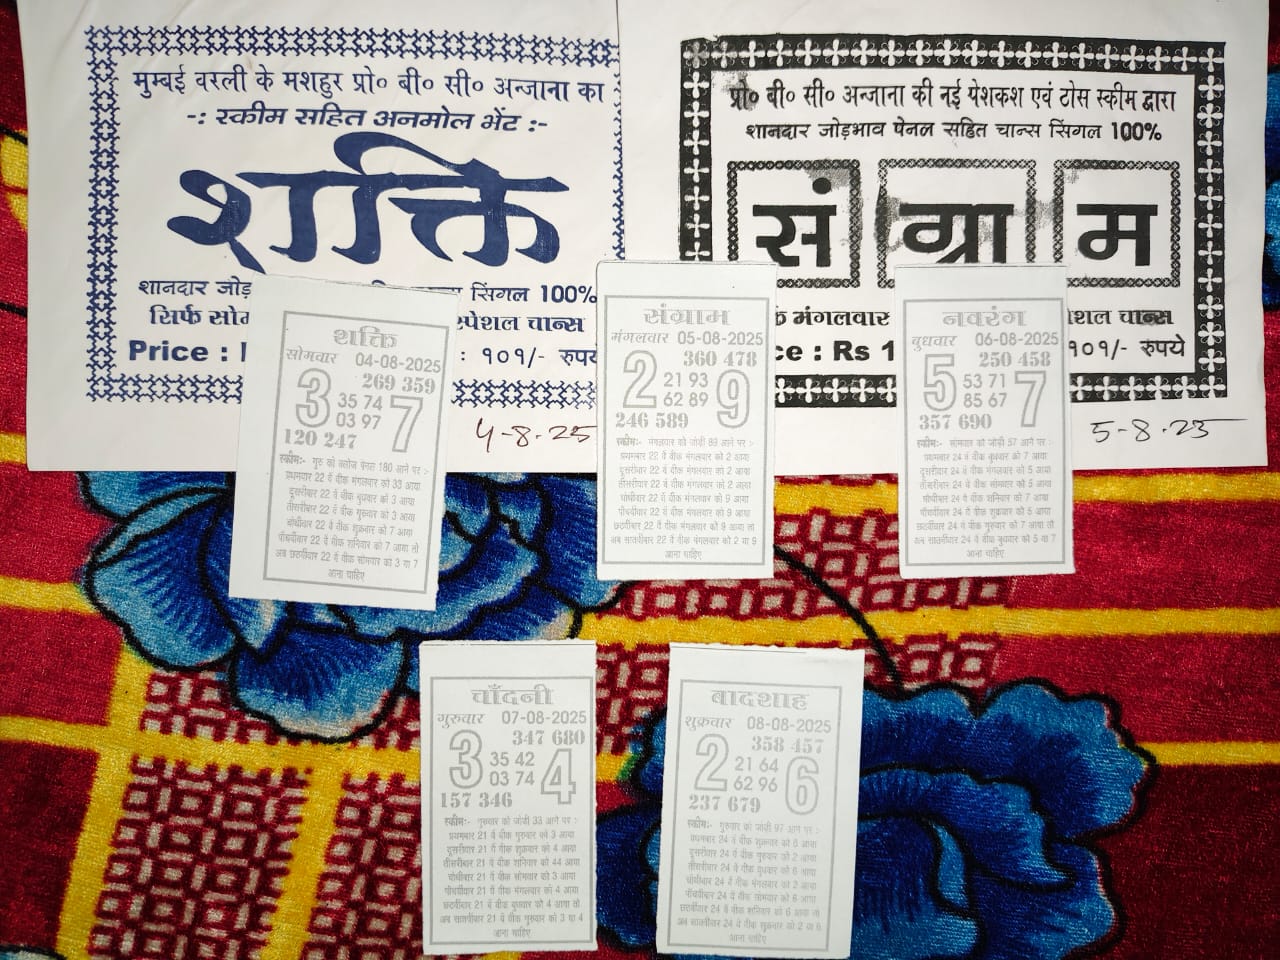 मुम्बई वरली के मशहुर प्रो० बी० सी० अन्जाना का
-: स्कीम सहित अनमोल भेंट :-
शक्ति
शानदार जोड़ सिंगल 100%
सिर्फ सोम स्पेशल चान्स
Price : १०१/- रुपये
4-8-25
प्रो० बी० सी० अन्जाना की नई पेशकश एवं टोस स्कीम द्वारा
शानदार जोड़भाव पेनल सहित चान्स सिंगल 100%
संग्राम
मंगलवार चान्स
Rs 1 १०१/- रुपये
5-8-25
शक्ति
सोमवार 04-08-2025
269 359
3 35 74 7
03 97
120 247
स्कीमः- गुरु को क्लोज पेनल 180 आने पर :-
प्रथमबार 22 वें वीक मंगलवार को 33 आया
दूसरीबार 22 वें वीक बुधवार को 3 आया
तीसरीबार 22 वें वीक गुरुवार को 3 आया
चोथीबार 22 वें वीक शुक्रवार को 7 आया
पाँचवीबार 22 वें वीक शनिवार को 7 आया तो
अब छठवीबार 22 वें वीक सोमवार को 3 या 7
आना चाहिए
संग्राम
मंगलवार 05-08-2025
360 478
2 21 93 9
62 89
246 589
स्कीमः- मंगलवार को जोड़ी 89 आने पर :-
प्रथमबार 22 वें वीक मंगलवार को 2 आया
दूसरीबार 22 वें वीक मंगलवार को 2 आया
तीसरीबार 22 वें वीक मंगलवार को 2 आया
चोथीबार 22 वें वीक मंगलवार को 9 आया
पाँचवीबार 22 वें वीक मंगलवार को 9 आया
छठवीबार 22 वें वीक मंगलवार को 9 आया तो
अब सातवीबार 22 वें वीक मंगलवार को 2 या 9
आना चाहिए
नवरंग
बुधवार 06-08-2025
250 458
5 53 71 7
85 67
357 690
स्कीमः- सोमवार को जोड़ी 57 आने पर :-
प्रथमबार 24 वें वीक बुधवार को 7 आया
दूसरीबार 24 वें वीक मंगलवार को 5 आया
तीसरीबार 24 वें वीक सोमवार को 5 आया
चोथीबार 24 वें वीक शनिवार को 7 आया
पाँचवीबार 24 वें वीक शुक्रवार को 5 आया
छठवीबार 24 वें वीक गुरुवार को 7 आया तो
अब सातवीबार 24 वें वीक बुधवार को 5 या 7
आना चाहिए
चाँदनी
गुरुवार 07-08-2025
347 680
3 35 42 4
03 74
157 346
स्कीमः- गुरुवार को जोड़ी 33 आने पर :-
प्रथमबार 21 वें वीक गुरुवार को 3 आया
दूसरीबार 21 वें वीक शुक्रवार को 4 आया
तीसरीबार 21 वें वीक शनिवार को 44 आया
चोथीबार 21 वें वीक सोमवार को 3 आया
पाँचवीबार 21 वें वीक मंगलवार को 4 आया
छठवीबार 21 वें वीक बुधवार को 4 आया तो
अब सातवीबार 21 वें वीक गुरुवार को 3 या 4
आना चाहिए
बादशाह
शुक्रवार 08-08-2025
358 457
2 21 64 6
62 96
237 679
स्कीमः- गुरुवार को जोड़ी 97 आने पर :-
प्रथमबार 24 वें वीक शुक्रवार को 6 आया
दूसरीबार 24 वें वीक गुरुवार को 2 आया
तीसरीबार 24 वें वीक बुधवार को 6 आया
चोथीबार 24 वें वीक मंगलवार को 2 आया
पाँचवीबार 24 वें वीक सोमवार को 6 आया
छठवीबार 24 वें वीक शनिवार को 6 आया तो
अब सातवीबार 24 वें वीक शुक्रवार को 2 या 6
आना चाहिए